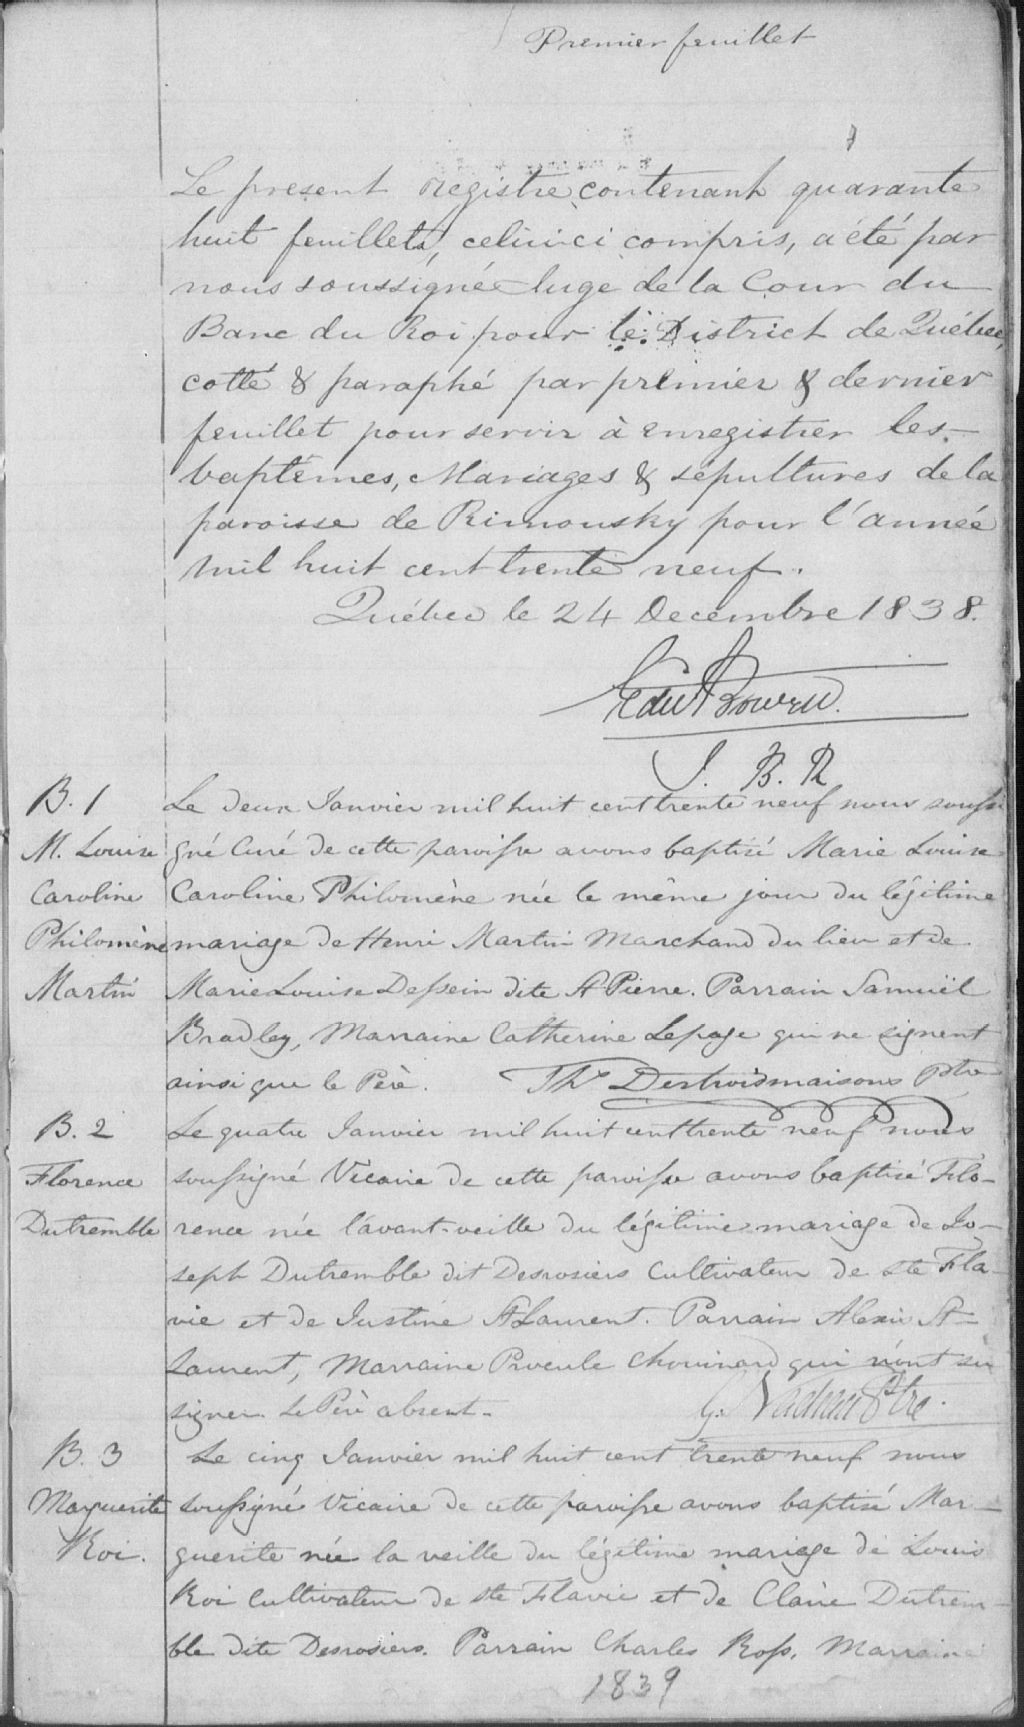 Premier feuillet
Le present registre contenant quarante
huit feuillets, celui-ci compris, a été par
nous soussigné Juge de la Cour du
Banc du Roi pour le District de Québec,
cotté & paraphé par premier & dernier
feuillet pour servir à enregistrer les
baptêmes, Mariages & sépultures de la
paroisse de Rimousky pour l'année
mil huit cent trente neuf.
Québec le 24 Decembre 1838.
Edw Bowen.
J. B. R
B. 1
M. Louise
Caroline
Philomène
Martin
Le deux Janvier mil huit cent trente neuf nous soussi
gné Curé de cette paroisse avons baptisé Marie Louise
Caroline Philomène née le même jour du légitime
mariage de Henri Martin Marchand du lieu et de
Marie Louise Dessein dite St Pierre. Parrain Samuël
Bradley, Marraine Catherine Lepage qui ne signent
ainsi que le Père. Ths Destroismaisons Ptre
B. 2
Florence
Dutremble
Le quatre Janvier mil huit cent trente neuf nous
soussigné Vicaire de cette paroisse avons baptisé Flo-
rence née l'avant-veille du légitime mariage de Jo-
seph Dutremble dit Desrosiers Cultivateur de Ste Fla-
vie et de Justine St Laurent. Parrain Alexis St
Laurent, Marraine Procule Chouinard qui n'ont su
signer. Le Père absent. G. Nadeau Ptre.
B. 3
Marguerite
Roi.
Le cinq Janvier mil huit cent trente neuf nous
soussigné Vicaire de cette paroisse avons baptisé Mar-
guerite née la veille du légitime mariage de Louis
Roi Cultivateur de Ste Flavie et de Claire Dutrem-
ble dite Desrosiers. Parrain Charles Ross, Marraine
1839